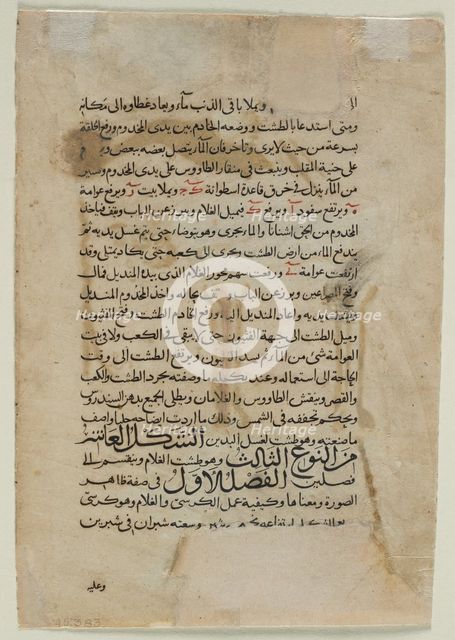 الى ويملا باقى الذنب ماء ويعاد غطاوه الى مكانه
ومتى استدعا بالطشت ووضعه الخادم بين يدى المخدوم ورفع الحلقة
بسرعة من حيث لا يرى وتاخر فان الماء يتصل بعضه ببعض
على حنية المقلب وينبعث فى منقار الطاووس على يدى المخدوم ويسير
من الماء ينزل فى خرق قاعدة اسطوانة ويملا بيت ويرفع عوامة
ويرتفع سفود ويرفع فيميل الغلام الباب ويقف فياخذ
المخدوم من الحق اشنانا والماء يجرى وهو يتوضا حتى يتم غسل يديه ثم
يندفع الماء من ارض الطشت ويجرى الى كعبه حتى يكاد يمتلى وقد
ارتفعت عوامة ورفعت سهم محور الغلام الذى بيده المنديل فمال
وفتح المصراعين وبرز عن الباب بحاله واخذ المخدوم المنديل
يديه واعاد المنديل اليه ورفع الخادم الطشت وفتح القثيون
وميل الطشت الى جهة القثيون حتى لا يبقى فى الكعب ولا فى بيت
العوامة شى من الماء ثم يسد القثيون ويرفع الطشت الى وقت
الحاجة الى استعماله وعند تكميله ما وصفته يجرد الطشت والكعب
والقصر وينقش الطاووس والغلامان ويطلى الجميع بدهن السندروس
ويحكم تجفيفه فى الشمس وذلك ما اردت ايضاحه جليا واصف
ما صنعته وهو طشت لغسل اليدين الشكل العاشر
من النوع الثالث وهو طشت الغلام وينقسم الى
فصلين الفصل الاول فى صفة ظاهر
الصورة ومعناها وكيفية عمل الكرسى والغلام وهو كرسى
وسعته شبران فى شبرين
وعليه
45.383
Heritage
Heritage
Heritage
Heritage
Heritage
Heritage